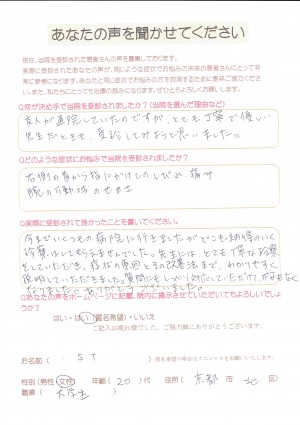 あなたの声を聞かせてください
現在、当院を受診された患者さんの声を募集しております。
実際に受診されたあなたの声が、同じような症状でお悩みの未来の患者さんにとって非常に参考になります。
Q何が決め手で当院を受診されましたか？（当院を選んだ理由など）
友人が通院していたのですが、とても丁寧で優しい
先生だときき、受診してみようと思いました。
Qどのような症状にお悩みで当院を受診されましたか？
右側の首から指にかけてのしびれ、痛み
腕の可動域のせまさ
Q実際に受診されて良かったことを書いてください。
今までいくつもの病院に行きましたがどこも納得のいく
診察はしてもらえませんでした。先生には、とても丁寧な診察
をしていただき、症状の原因とその改善法まで、わかりやすく
説明していただきました。質問にもしっかり対応していただけて、不安もなく
なりました。ありがとうございました。
Qあなたの声をホームページに記載、院内に掲示させていただいてもよろしいでしょうか？
はい・はい(匿名希望)・いいえ
ご記入お疲れ様でした。ご協力誠にありがとうございます。
お名前( ST )
匿名希望の場合はイニシャルをお願いいたします。
性別(男性・女性) 年齢(20)代 住所(京都 市 北 区)
職業(大学生)